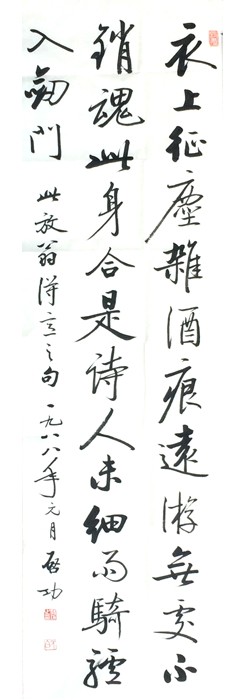 衣上征塵雜酒痕遠游無處不
銷魂此身合是诗人未細雨騎驢
入劒門
此放翁得意之句 一九八八年元月 啟功